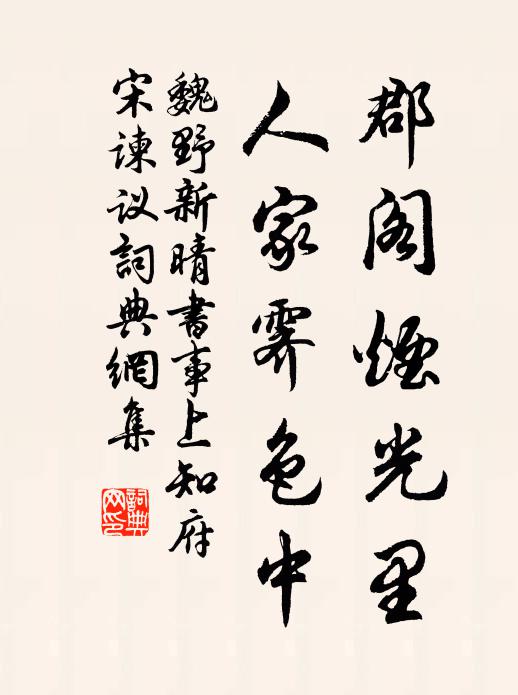 郡阁煙光里
人家霁色中
魏野新晴書事上知府
宋諫议詞典網集
詞典网印